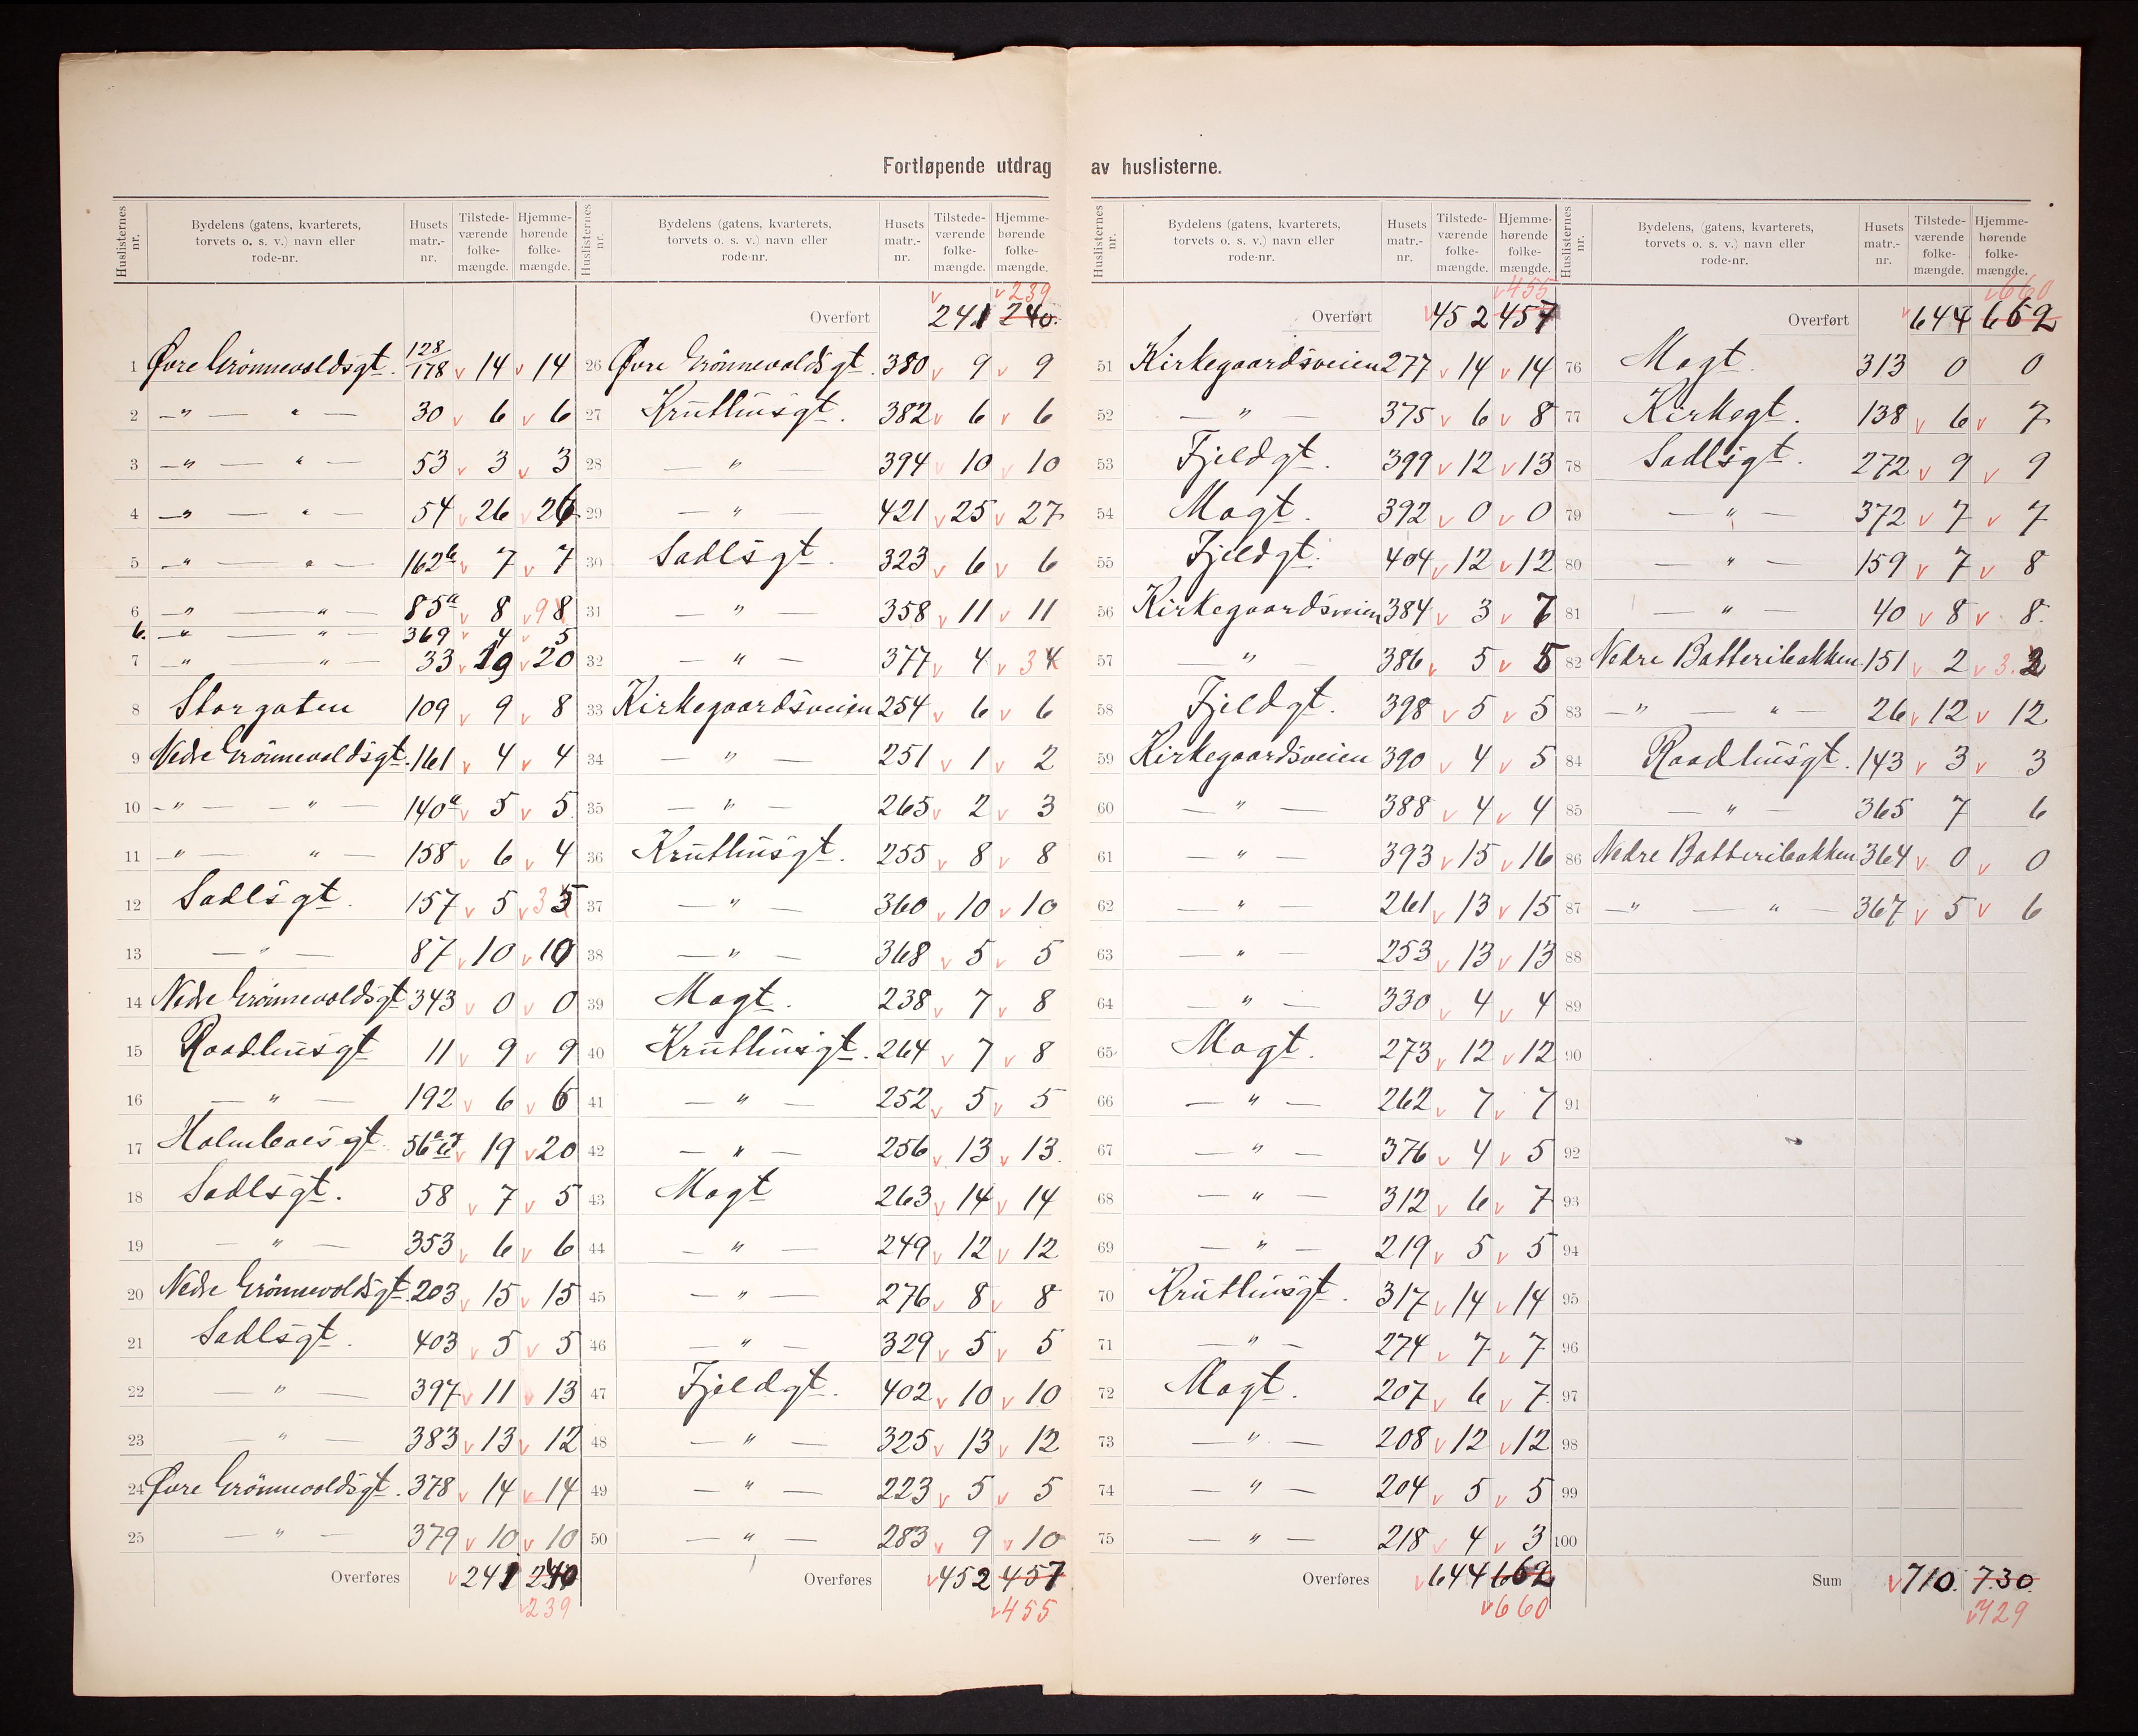 Fortløpende utdrag av huslisterne.
Huslisternes nr. | Bydelens (gatens, kvarterets, torvets o. s. v.) navn eller rode-nr. | Husets matr.-nr. | Tilstedeværende folkemængde. | Hjemmehørende folkemængde.
1 Øvre Grönnevoldsgt. 128/178 v 14 v 14
2 —"— " — 30 v 6 v 6
3 —"— " — 53 v 3 v 3
4 —"— " — 54 v 26 v 26
5 —"— " — 162b v 7 v 7
6 —"— " — 85a v 8 v 9 8
6. —"— " — 369 v 4 v 5
7 —"— " — 33 v 19 v 20
8 Storgaten 109 v 9 v 8
9 Nedre Grönnevoldsgt. 161 v 4 v 4
10 —"— " — 140a v 5 v 5
11 —"— " — 158 v 6 v 4
12 Sadlsgt. 157 v 5 v 3 5
13 — " — 87 v 10 v 10
14 Nedre Grönnevoldsgt 343 v 0 v 0
15 Raadhusgt 11 v 9 v 9
16 — " — 192 v 6 v 6
17 Holmboesgt. 56 v 19 v 20
18 Sadlsgt. 58 v 7 v 5
19 — " — 353 v 6 v 6
20 Nedre Grönnevoldsgt. 203 v 15 v 15
21 Sadlsgt. 403 v 5 v 5
22 — " — 397 v 11 v 13
23 — " — 383 v 13 v 12
24 Øvre Grönnevoldsgt. 378 v 14 v 14
25 — " — 379 v 10 v 10
Overføres v 241 240
v 239
Huslisternes nr. | Bydelens (gatens, kvarterets, torvets o. s. v.) navn eller rode-nr. | Husets matr.-nr. | Tilstedeværende folkemængde. | Hjemmehørende folkemængde.
v v 239
Overført 241 240.
26 Øvre Grönnevoldsgt. 380 v 9 v 9
27 Kruthusgt. 382 v 6 v 6
28 — " — 394 v 10 v 10
29 — " — 421 v 25 v 27
30 Sadlsgt. 323 v 6 v 6
31 — " — 358 v 11 v 11
32 — " — 377 v 4 v 3 4
33 Kirkegaardsveien 254 v 6 v 6
34 — " — 251 v 1 v 2
35 — " — 265 v 2 v 3
36 Kruthusgt. 255 v 8 v 8
37 — " — 360 v 10 v 10
38 — " — 368 v 5 v 5
39 Magt. 238 v 7 v 8
40 Kruthusgt. 264 v 7 v 8
41 — " — 252 v 5 v 5
42 — " — 256 v 13 v 13
43 Magt 263 v 14 v 14
44 — " — 249 v 12 v 12
45 — " — 276 v 8 v 8
46 — " — 329 v 5 v 5
47 Fjeldgt. 402 v 10 v 10
48 — " — 325 v 13 v 12
49 — " — 223 v 5 v 5
50 — " — 283 v 9 v 10
Overføres v 452 457
v 455
Huslisternes nr. | Bydelens (gatens, kvarterets, torvets o. s. v.) navn eller rode-nr. | Husets matr.-nr. | Tilstedeværende folkemængde. | Hjemmehørende folkemængde.
v 455
Overført v 452 457
51 Kirkegaardsveien 277 v 14 v 14
52 — " — 375 v 6 v 8
53 Fjeldgt. 399 v 12 v 13
54 Magt. 392 v 0 v 0
55 Fjeldgt. 404 v 12 v 12
56 Kirkegaardsveien 384 v 3 v 7
57 — " — 386 v 5 v 5
58 Fjeldgt. 398 v 5 v 5
59 Kirkegaardsveien 390 v 4 v 5
60 — " — 388 v 4 v 4
61 — " — 393 v 15 v 16
62 — " — 261 v 13 v 15
63 — " — 253 v 13 v 13
64 — " — 330 v 4 v 4
65 Magt. 273 v 12 v 12
66 — " — 262 v 7 v 7
67 — " — 376 v 4 v 5
68 — " — 312 v 6 v 7
69 — " — 219 v 5 v 5
70 Kruthusgt. 317 v 14 v 14
71 — " — 274 v 7 v 7
72 Magt. 207 v 6 v 7
73 — " — 208 v 12 v 12
74 — " — 204 v 5 v 5
75 — " — 218 v 4 v 3
Overføres v 644 662
v 660
Huslisternes nr. | Bydelens (gatens, kvarterets, torvets o. s. v.) navn eller rode-nr. | Husets matr.-nr. | Tilstedeværende folkemængde. | Hjemmehørende folkemængde.
v 660
Overført v 644 662
76 Magt. 313 0 0
77 Kirkegt. 138 v 6 v 7
78 Sadlsgt. 272 v 9 v 9
79 — " — 372 v 7 v 7
80 — " — 159 v 7 v 8
81 — " — 40 v 8 v 8.
82 Nedre Batteribakken 151 v 2 v 3. 2
83 —"— " — 26 v 12 v 12
84 Raadhusgt. 143 v 3 v 3
85 — " — 365 7 6
86 Nedre Batteribakken 364 v 0 v 0
87 —"— " — 367 v 5 v 6
88
89
90
91
92
93
94
95
96
97
98
99
100
Sum v 710. 730.
v 729